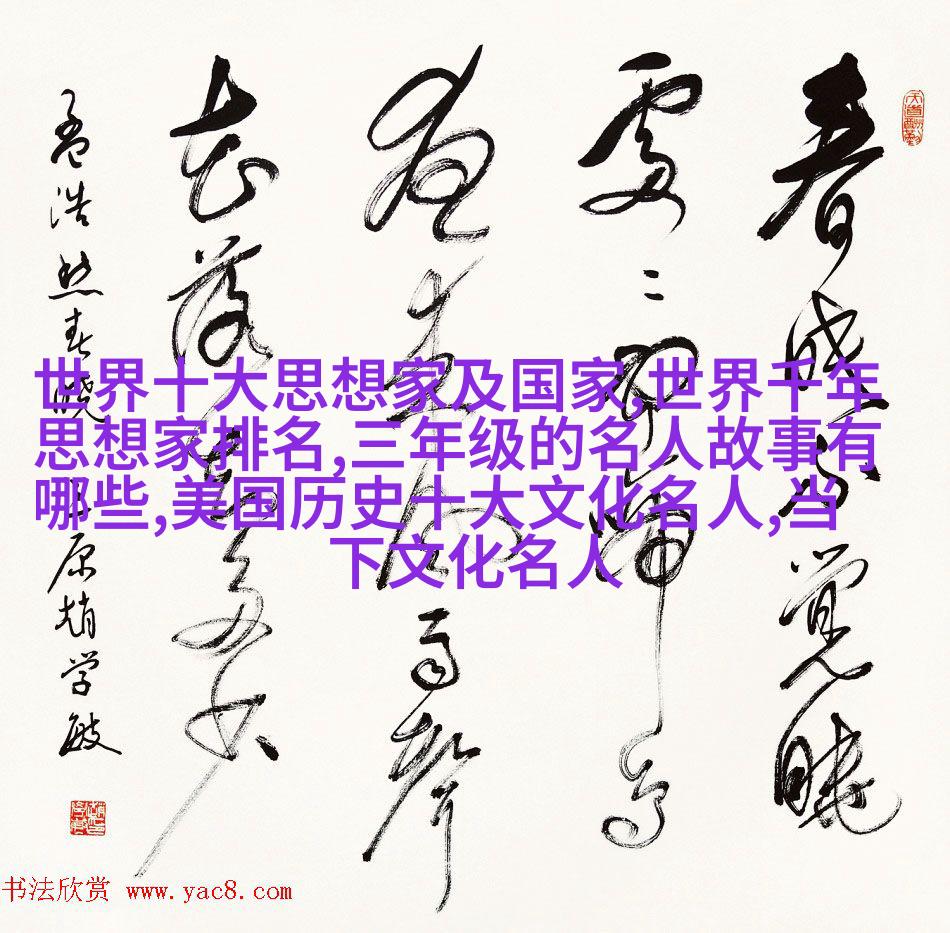 春眠不覺曉
處〻聞啼鳥
夜来風雨聲
花落知多少
孟浩然春晓 原趙学敏
天道酬勤
世界十大思想家及国家,世界千年
思想家排名,三年级的名人故事有
哪些,美国历史十大文化名人,当
下文化名人
书法欣赏 www.yac8.com